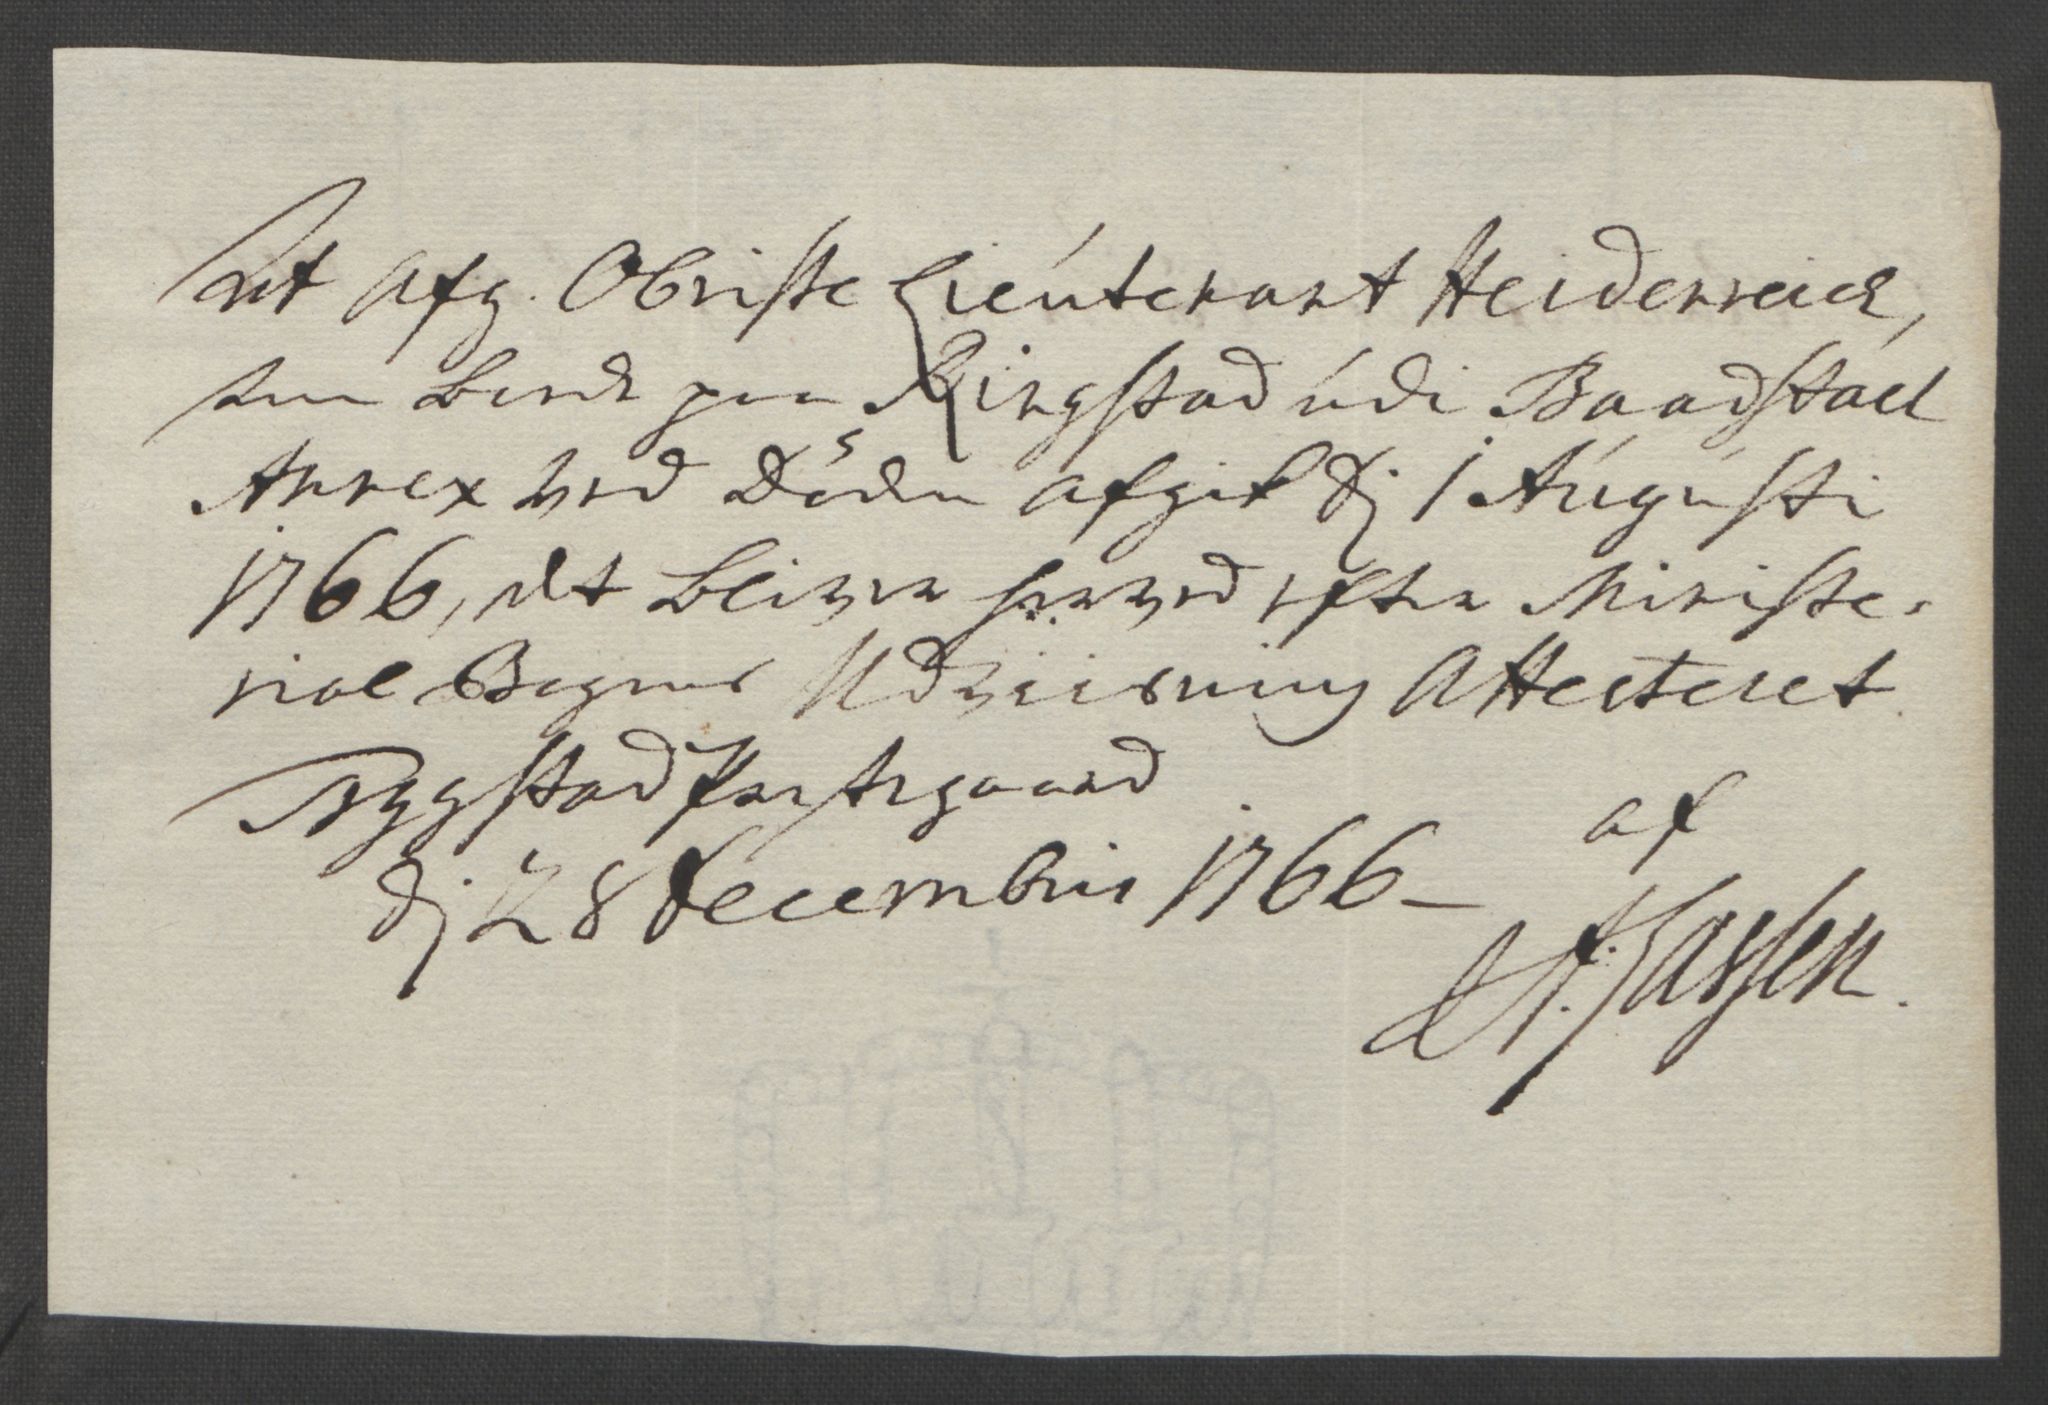 At Afg. Obriste Lieutenant Heidenreich,
som boede paa Ringstad udi Baadstad
Annex ved Döden afgik dj 1 Augusti
1766, det bliver herved efter Ministe-
rial Bogens Udviisning Attesteret
Trygstad Præstegaard
dj 28 Decembris 1766 – af